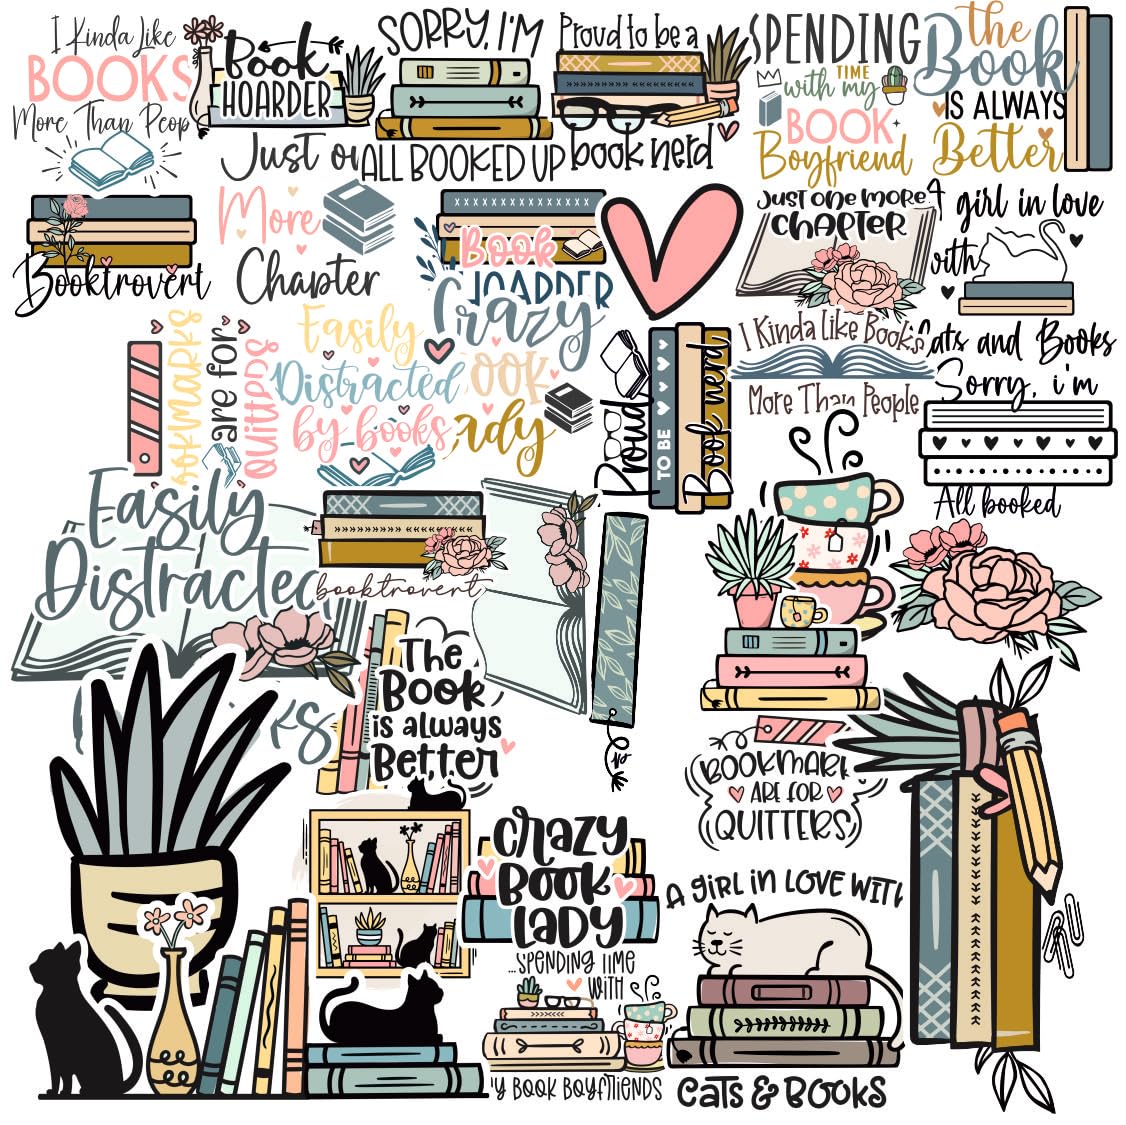 I Kinda Like
BOOKS
More Than Peop
Book
HOARDER
Just
SORRY, I'M
ALL BOOKED UP
Proud to be a
book nerd
SPENDING
TIME
with my
BOOK
Boyfriend
the
Book
IS ALWAYS
Better
Booktrovert
More
Chapter
Book
HOARDER
Just one more
Chapter
A girl in love
with
Cats and Books
bookmarks
are for
quitters
Easily
Distracted
by books
Crazy
Book
Lady
Proud
TO BE
Book nerd
I Kinda Like Books
More Than People
Sorry, i'm
All booked
Easily
Distracted
booktrovert
The
Book
is always
Better
BOOKMARK
ARE FOR
QUITTERS
Crazy
Book
Lady
...SPENDING TIME
WITH
Y BOOK BOYFRIENDS
A GIRL IN LOVE WITH
CATS & BOOKS